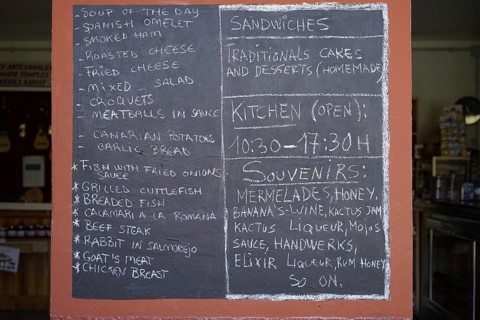 - SOUP OF THE DAY
- SPANISH OMELET
- SMOKED HAM
- ROASTED CHEESE
- FRIED CHEESE
- MIXED SALAD
- CROQUETS
- MEATBALLS IN SAUCE
- CANARIAN POTATOES
- GARLIC BREAD
* FISH WITH FRIED ONIONS
SAUCE
* GRILLED CUTTLEFISH
* BREADED FISH
* CALAMARI A LA ROMANA
* BEEF STEAK
* RABBIT IN SALMOREJO
* GOAT'S MEAT
* CHICKEN BREAST
SANDWICHES
TRADITIONALS CAKES
AND DESSERTS (HOMEMADE)
KITCHEN (OPEN):
10:30-17:30 H
SOUVENIRS:
MERMELADES, HONEY,
BANANA'S-WINE, KACTUS JAM
KACTUS LIQUEUR, MOJOS
SAUCE, HANDWERKS,
ELIXIR LIQUEUR, RUM HONEY
SO ON.